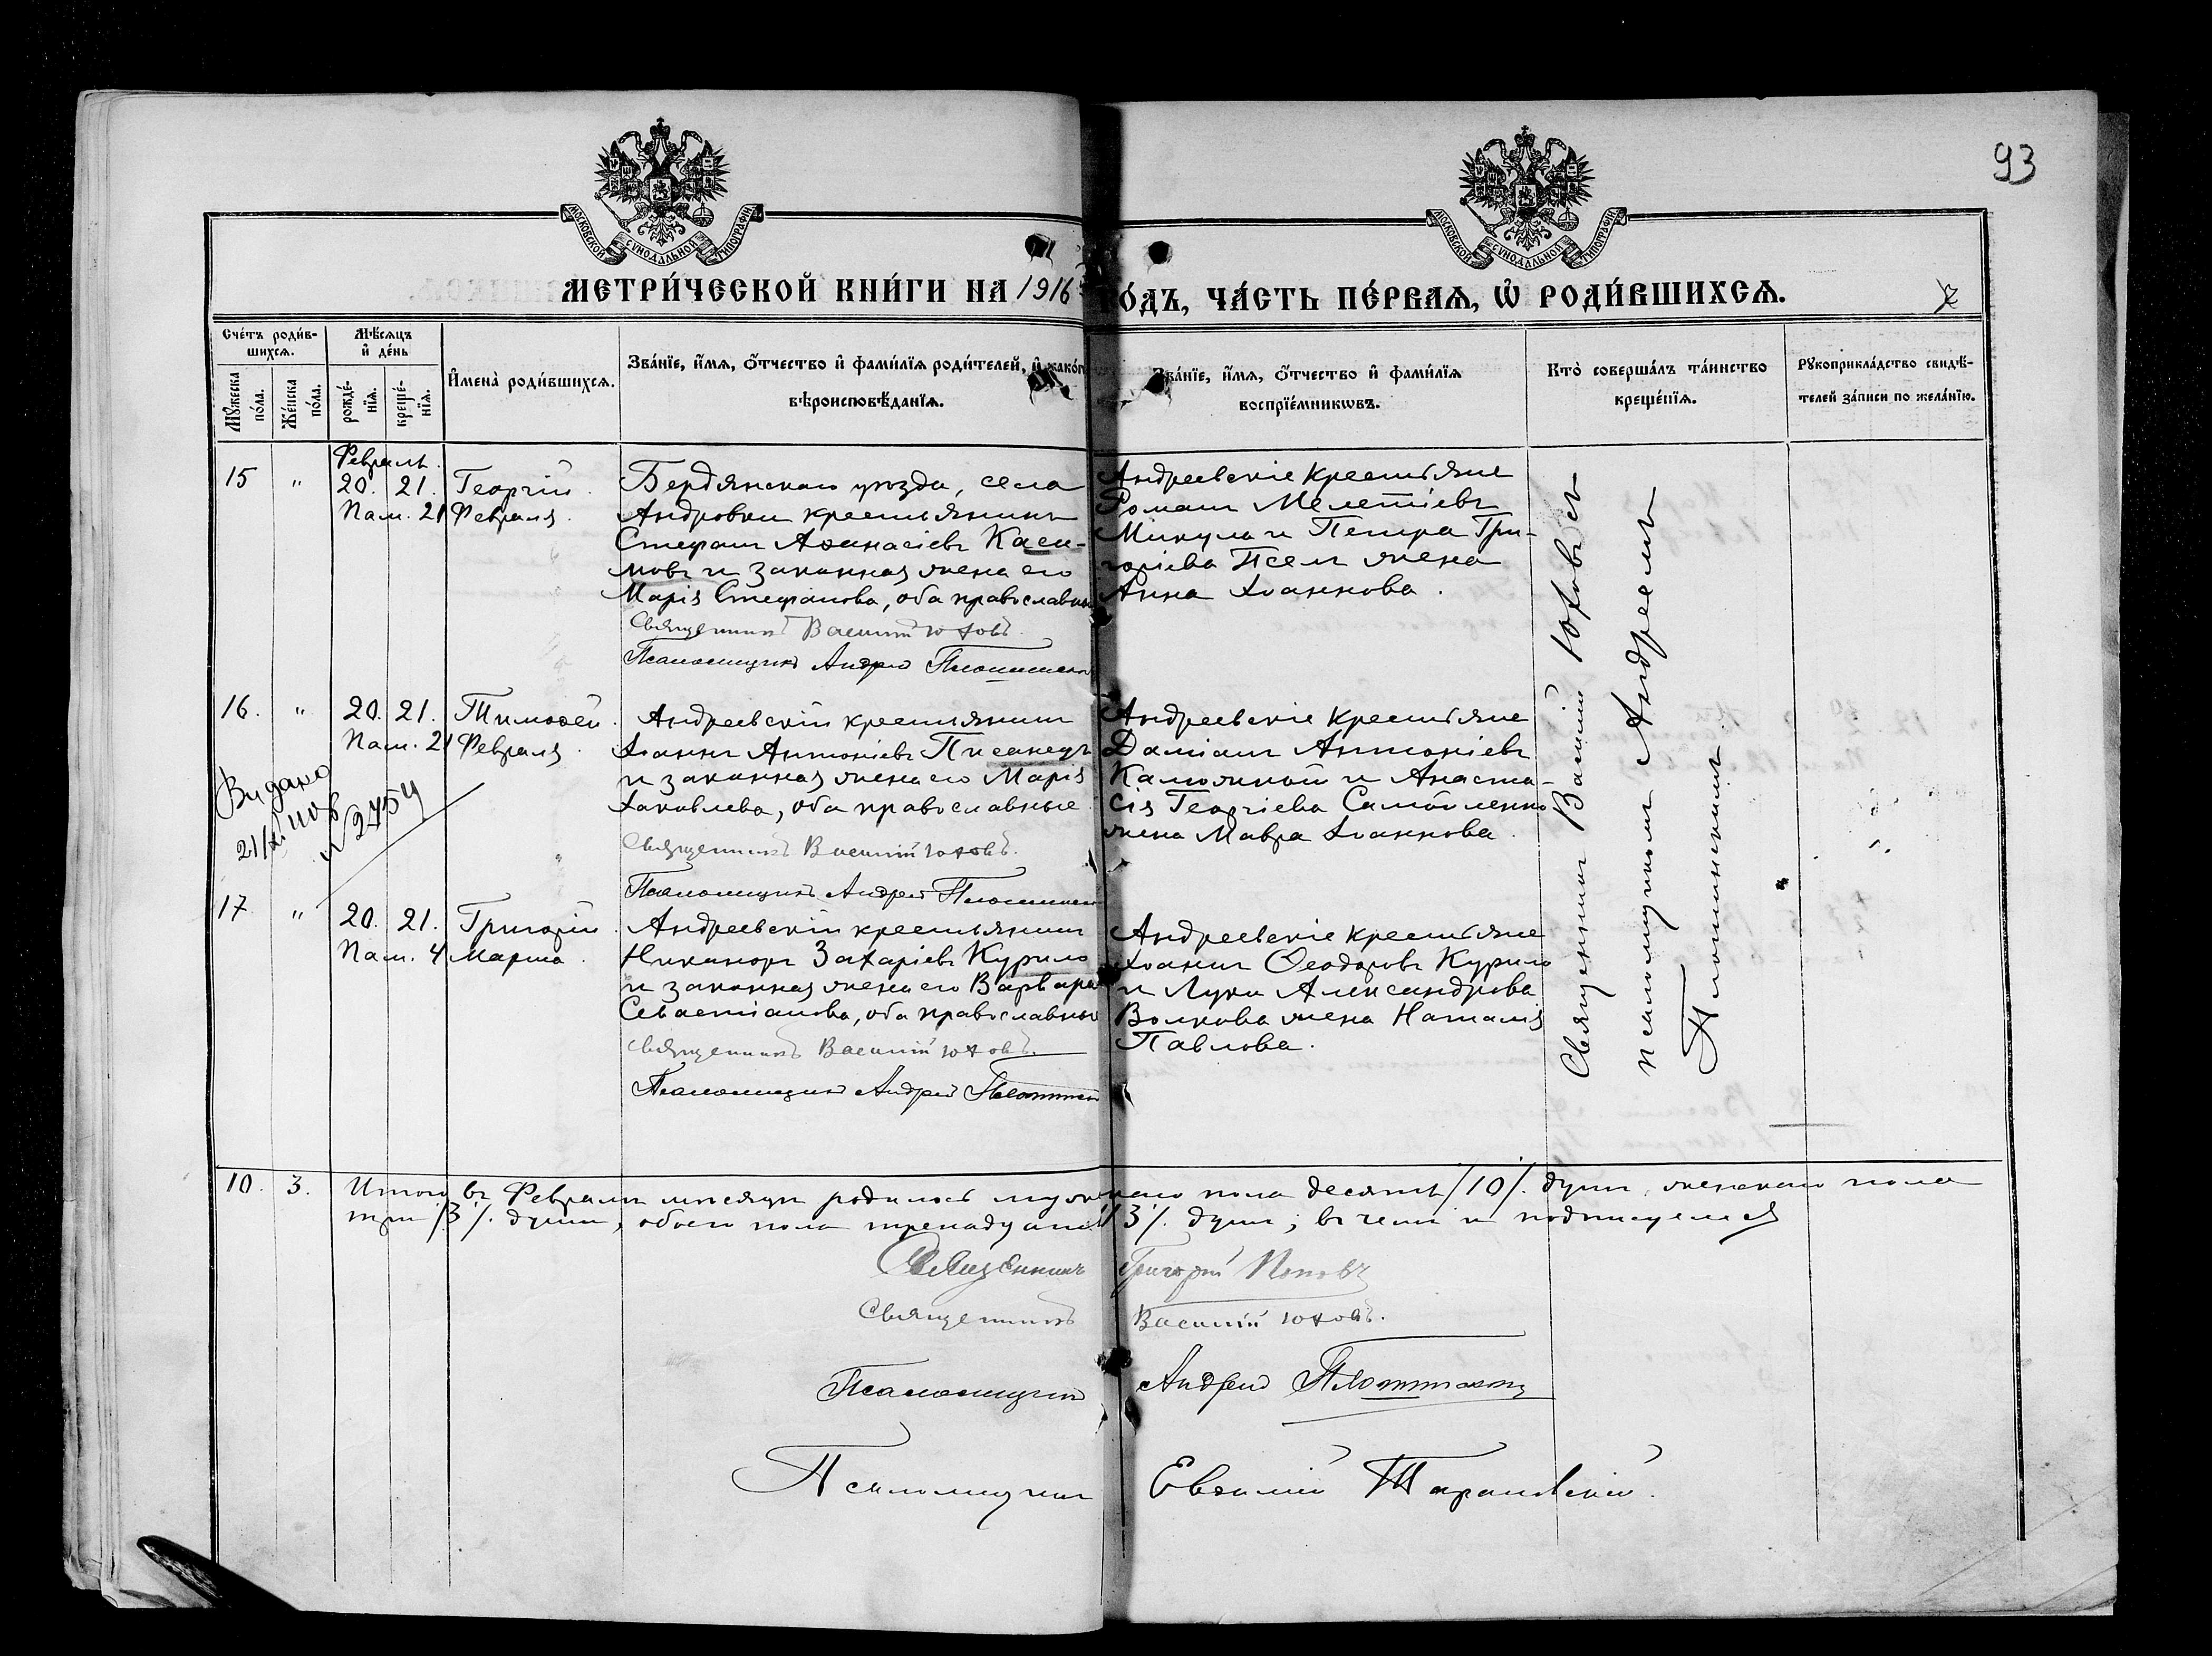 93
МОСКОВСКОЙ СУНОДАЛЬНОЙ ТИПОГРАФІИ
МОСКОВСКОЙ СУНОДАЛЬНОЙ ТИПОГРАФІИ
МЕТРИ́ЧЕСКОЙ КНИ́ГИ НА 1916 ГО́ДЪ, ЧА́СТЬ ПЕ́РВАЯ, Ѡ҆ РОДИ́ВШИХСѦ.
Сче́тъ роди́в-
шихсѧ.
Мѣ́сѧцъ
и҆ де́нь
Мꙋ́жеска
по́ла.
Же́нска
по́ла.
рожде́-
нїѧ.
креще́-
нїѧ.
И҆мена̀ роди́вшихсѧ.
Зва́нїе, и҆́мѧ, ѻ҆́тчество и҆ фами́лїѧ роди́телей, и҆ како́г
вѣроисповѣ́данїѧ.
Зва́нїе, и҆́мѧ, ѻ҆́тчество и҆ фами́лїѧ
воспрїе́мникѡвъ.
Кто̀ соверша́лъ та́инство
креще́нїѧ.
Рꙋкоприкла́дство свидѣ́-
телей за́писи по жела́нїю.
Февраль.
15 " 20. 21. Георгій.
Пам. 21 Февраля.
Бердянскаго уѣзда, села
Андровки крестьянинъ
Стефанъ Аѳанасіевъ Каси-
мовъ и законная жена его
Марія Стефанова, оба православные
Священникъ Василій Юховъ.
Псаломщикъ Андрей
Андреевскіе крестьяне
Романъ Мелетіевъ
Микула и Петра Гри-
горіева Псёл жена
Анна Іоаннова.
16. " 20. 21. Тимоѳей.
Пам. 21 Февраля.
Андреевскій крестьянинъ
Іоаннъ Антоніевъ Писанецъ
и законная жена его Марія
Іаковлева, оба православные.
Священникъ Василій Юховъ.
Псаломщикъ Андрей
Андреевскіе крестьяне
Даміанъ Антоніевъ
Калюжной и Анаста-
сія Георгіева Самойленко
жена Мавра Іоаннова.
Видано
21/XI 1108
N 2754
17 " 20. 21. Григорій.
Пам. 4 Марта.
Андреевскій крестьянинъ
Никаноръ Захаріевъ Курило
и законная жена его Варвара
Севастіанова, оба православные
Священникъ Василій Юховъ.
Псаломщикъ Андрей
Андреевскіе крестьяне
Іоаннъ Ѳеодоровъ Курило
и Луки Александрова
Волкова жена Наталія
Павлова.
Священникъ Василій Юховъ съ
псаломщикомъ Андреемъ
10. 3. Итого въ Февралѣ мѣсяцѣ родилось мужескаго пола десять /10/. душъ, женскаго пола
три /3/. души, обоего пола тринадцать /13/. душъ; въ чемъ и подписуемся
Священникъ Григорій Поповъ
Священникъ Василій Юховъ.
Псаломщикъ Андрей
Псаломщикъ Евѳимій Тарановскій.